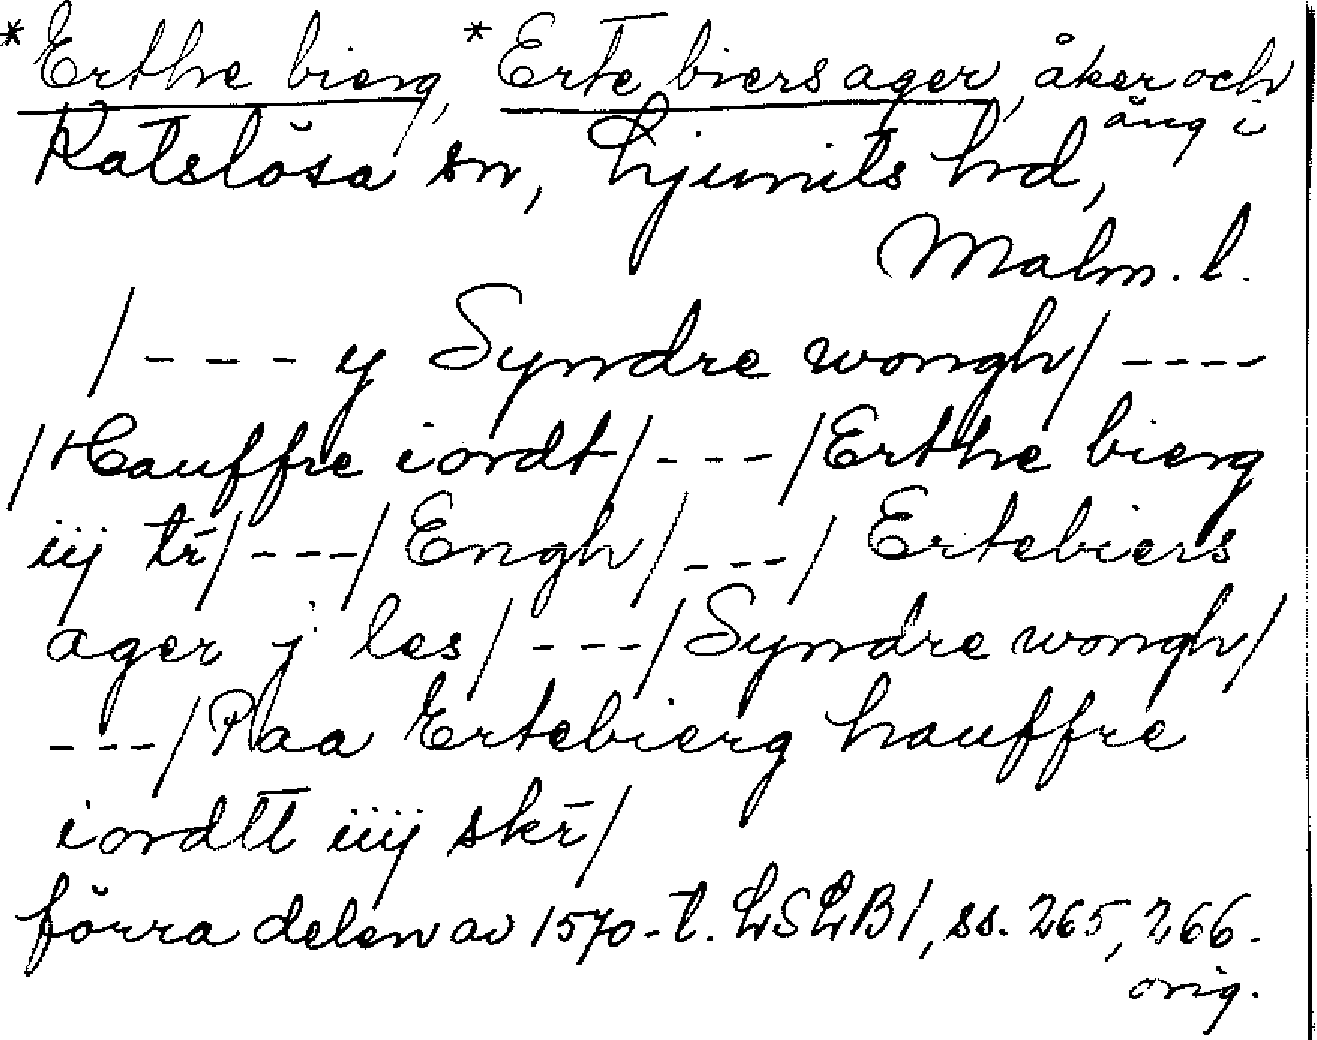 *Erthe bierg, *Erte biers ager, åker och
äng i
Katslösa sn, Ljunits hd,
Malm. l.
/---- y Syndre wongh/ ----
/Hauffre iordt/ --- /Erthe bierg
iij tr̄/ --- / Engh/ --- / Ertebiers
ager j les/ --- /Syndre wongh/
--- /Paa Ertebierg hauffre
iordtt iiij skr̄/
förra delen av 1570-t. LSLB1, ss. 265, 266.
orig.